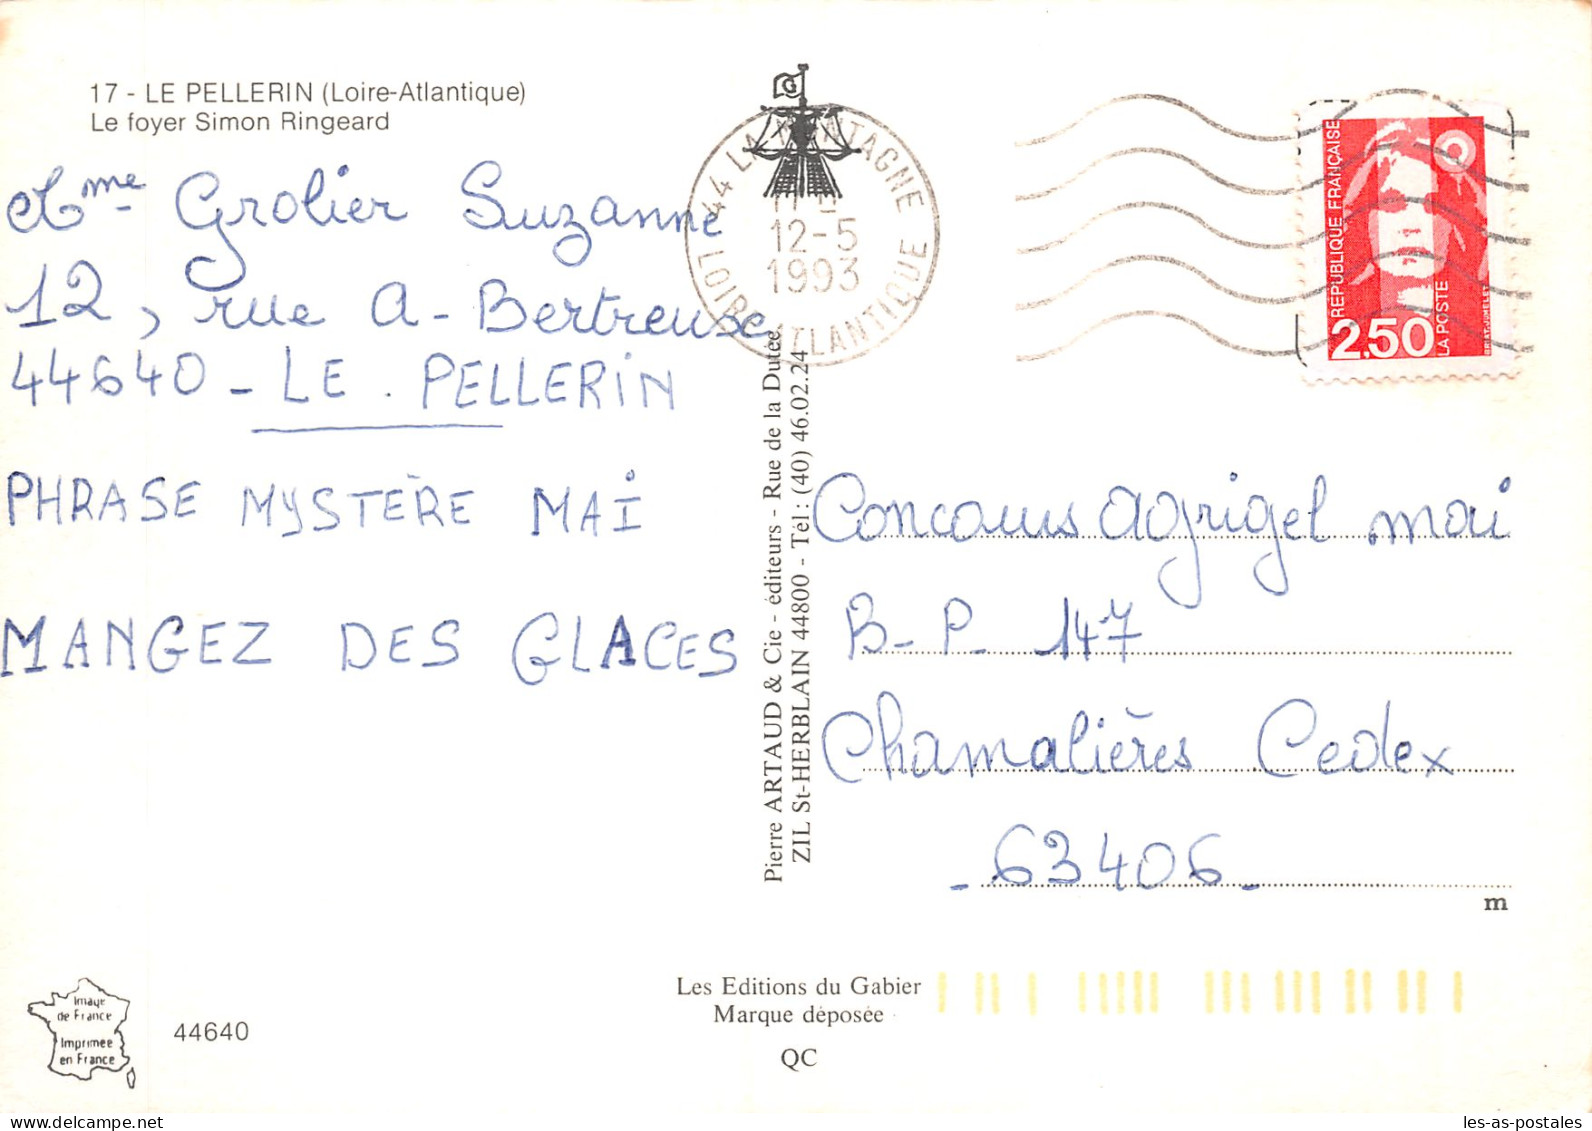 17 - LE PELLERIN (Loire-Atlantique)
Le foyer Simon Ringeard
Mme Grolier Suzanne
12, rue A-Bertreuse
44640 - LE . PELLERIN
PHRASE MYSTÈRE MAI
MANGEZ DES GLACES
44 LA MONTAGNE
12-5
1993
LOIRE ATLANTIQUE
RÉPUBLIQUE FRANÇAISE
2,50
LA POSTE
Pierre ARTAUD & Cie - éditeurs - Rue de la Dutée
ZIL St-HERBLAIN 44800 - Tél: (40) 46.02.24
Concours agrigel mai
B-P. 147
Chamalières Cedex
- 63406 -
m
Image
de France
Imprimée
en France
44640
Les Editions du Gabier
Marque déposée
QC
les-as-postales